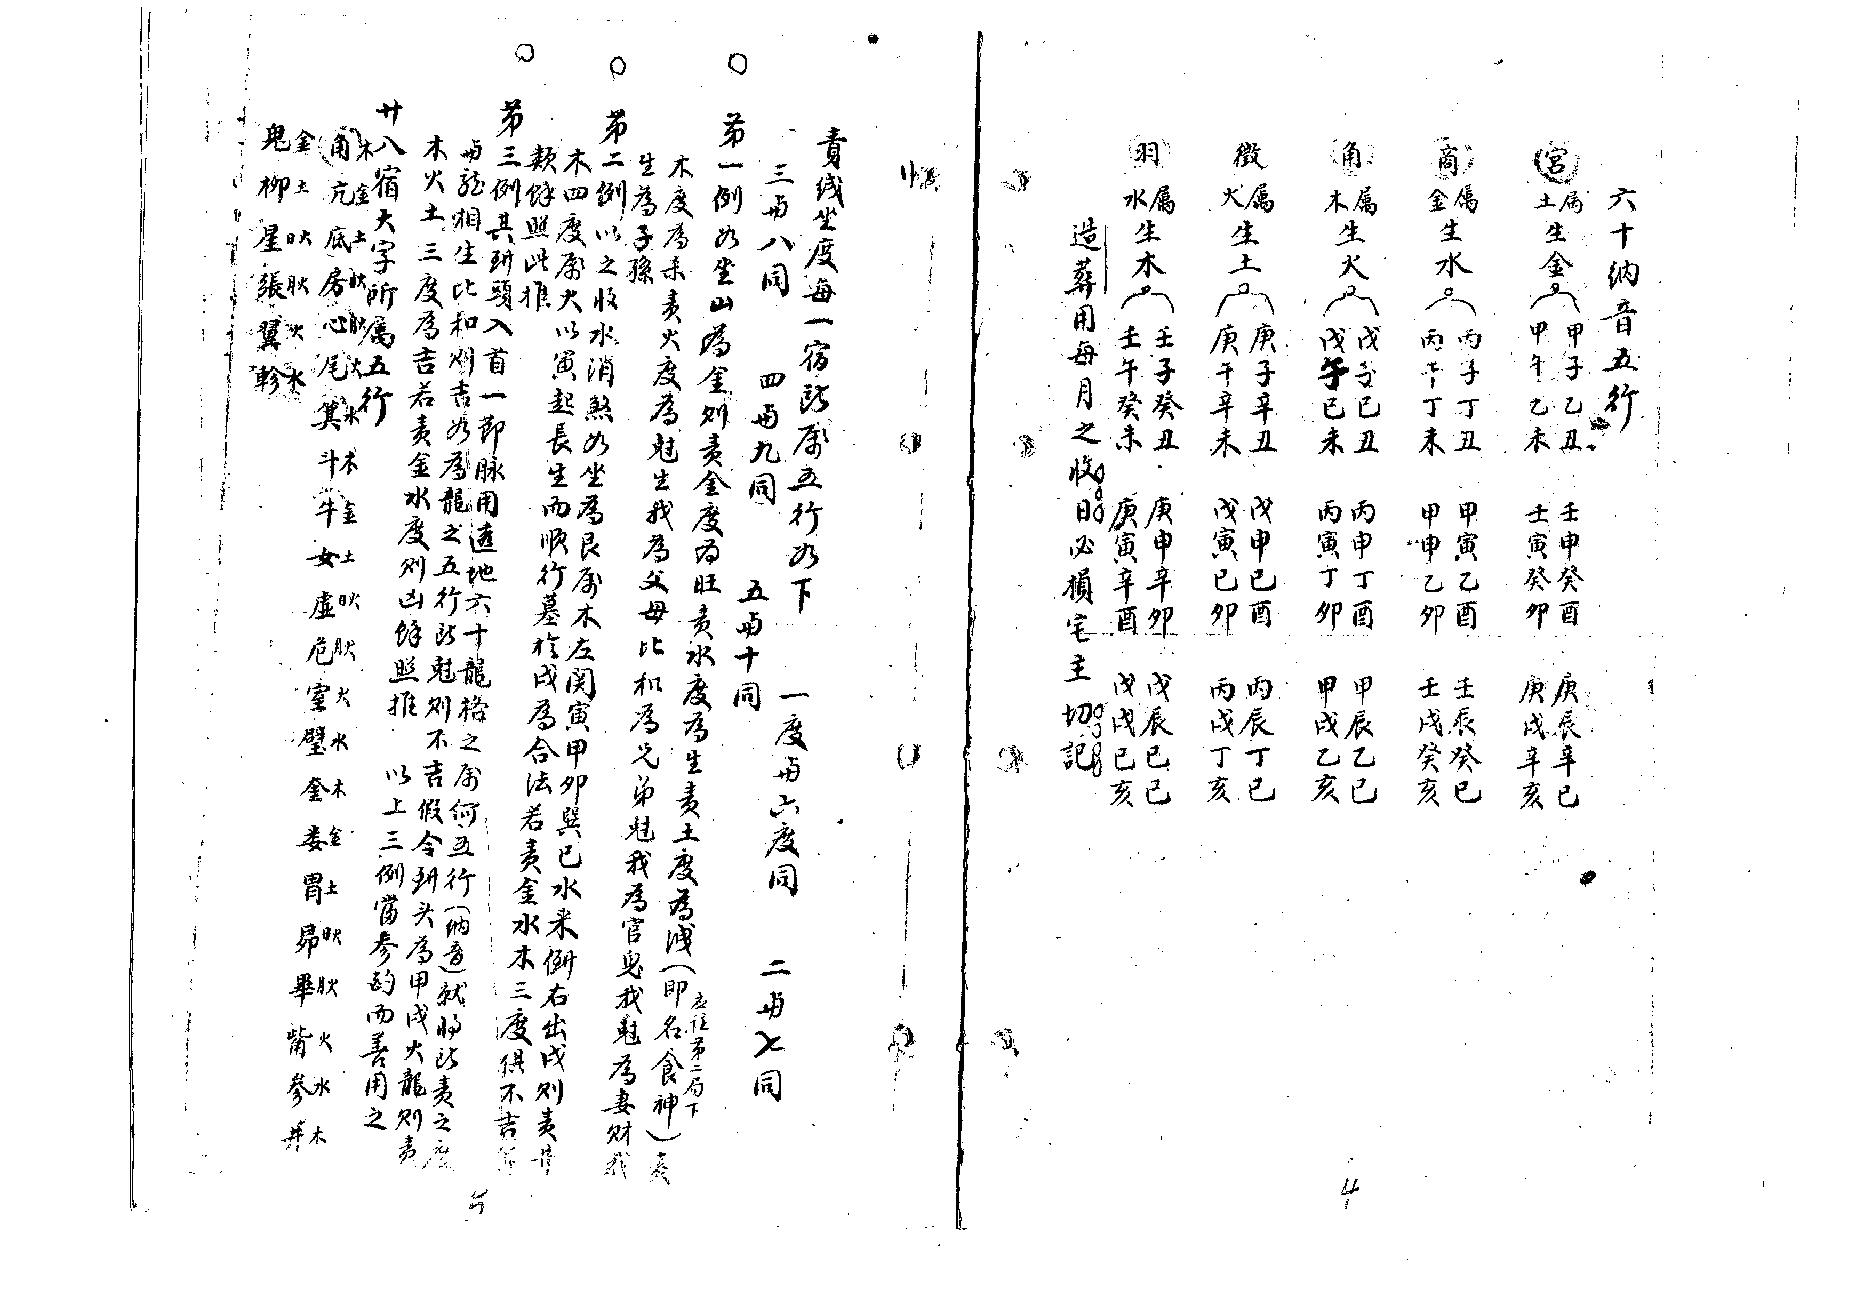 六十納音五行
宮属土生金 甲子乙丑 甲午乙未 壬申癸酉 壬寅癸卯 庚辰辛巳 庚戌辛亥
商属金生水 丙子丁丑 丙午丁未 甲寅乙酉 甲申乙卯 壬辰癸巳 壬戌癸亥
角属木生火 戊子己丑 戊午己未 丙申丁酉 丙寅丁卯 甲辰乙巳 甲戌乙亥
徵火属生土 庚子辛丑 庚午辛未 戊申己酉 戊寅己卯 丙辰丁巳 丙戌丁亥
羽属水生木 壬子癸丑 壬午癸未 庚申辛卯 庚寅辛酉 戊辰己巳 戊戌己亥
造葬用每月之收日必損宅主 切記
4
責线坐度每一宿所属五行如下 一度与六度同 二与七同
三与八同 四与九同 五与十同
○第一例如坐山為金则责金度为旺责水度為生责土度為浅(即名食神)
木度為未责火度為尅生我為父母比和為兄弟尅我為官鬼我尅為妻财我
生為子孫
○第二例以之收水消煞如坐為艮属木左関寅甲卯巽巳水来倒右出戌则责
木四度属火以寅起長生而順行墓於戌為合法若责金水木三度俱不吉
類餘照此推
○第三例其研頭入首一節脉用透地六十龍格之属何五行(纳音)就将所责之度
与龍相生比和则吉如為龍之五行所尅则不吉假令研头為甲戌火龍则责
木火土三度為吉若责金水度则凶餘照推 以上三例當参酌而善用之
廿八宿大字所属五行
角亢底房心尾箕斗牛女虚危室壁奎婁胃昴畢觜參井
木金土 火水木金土 火水木金土 火水木
鬼柳星張翼軫
金土 火水
5